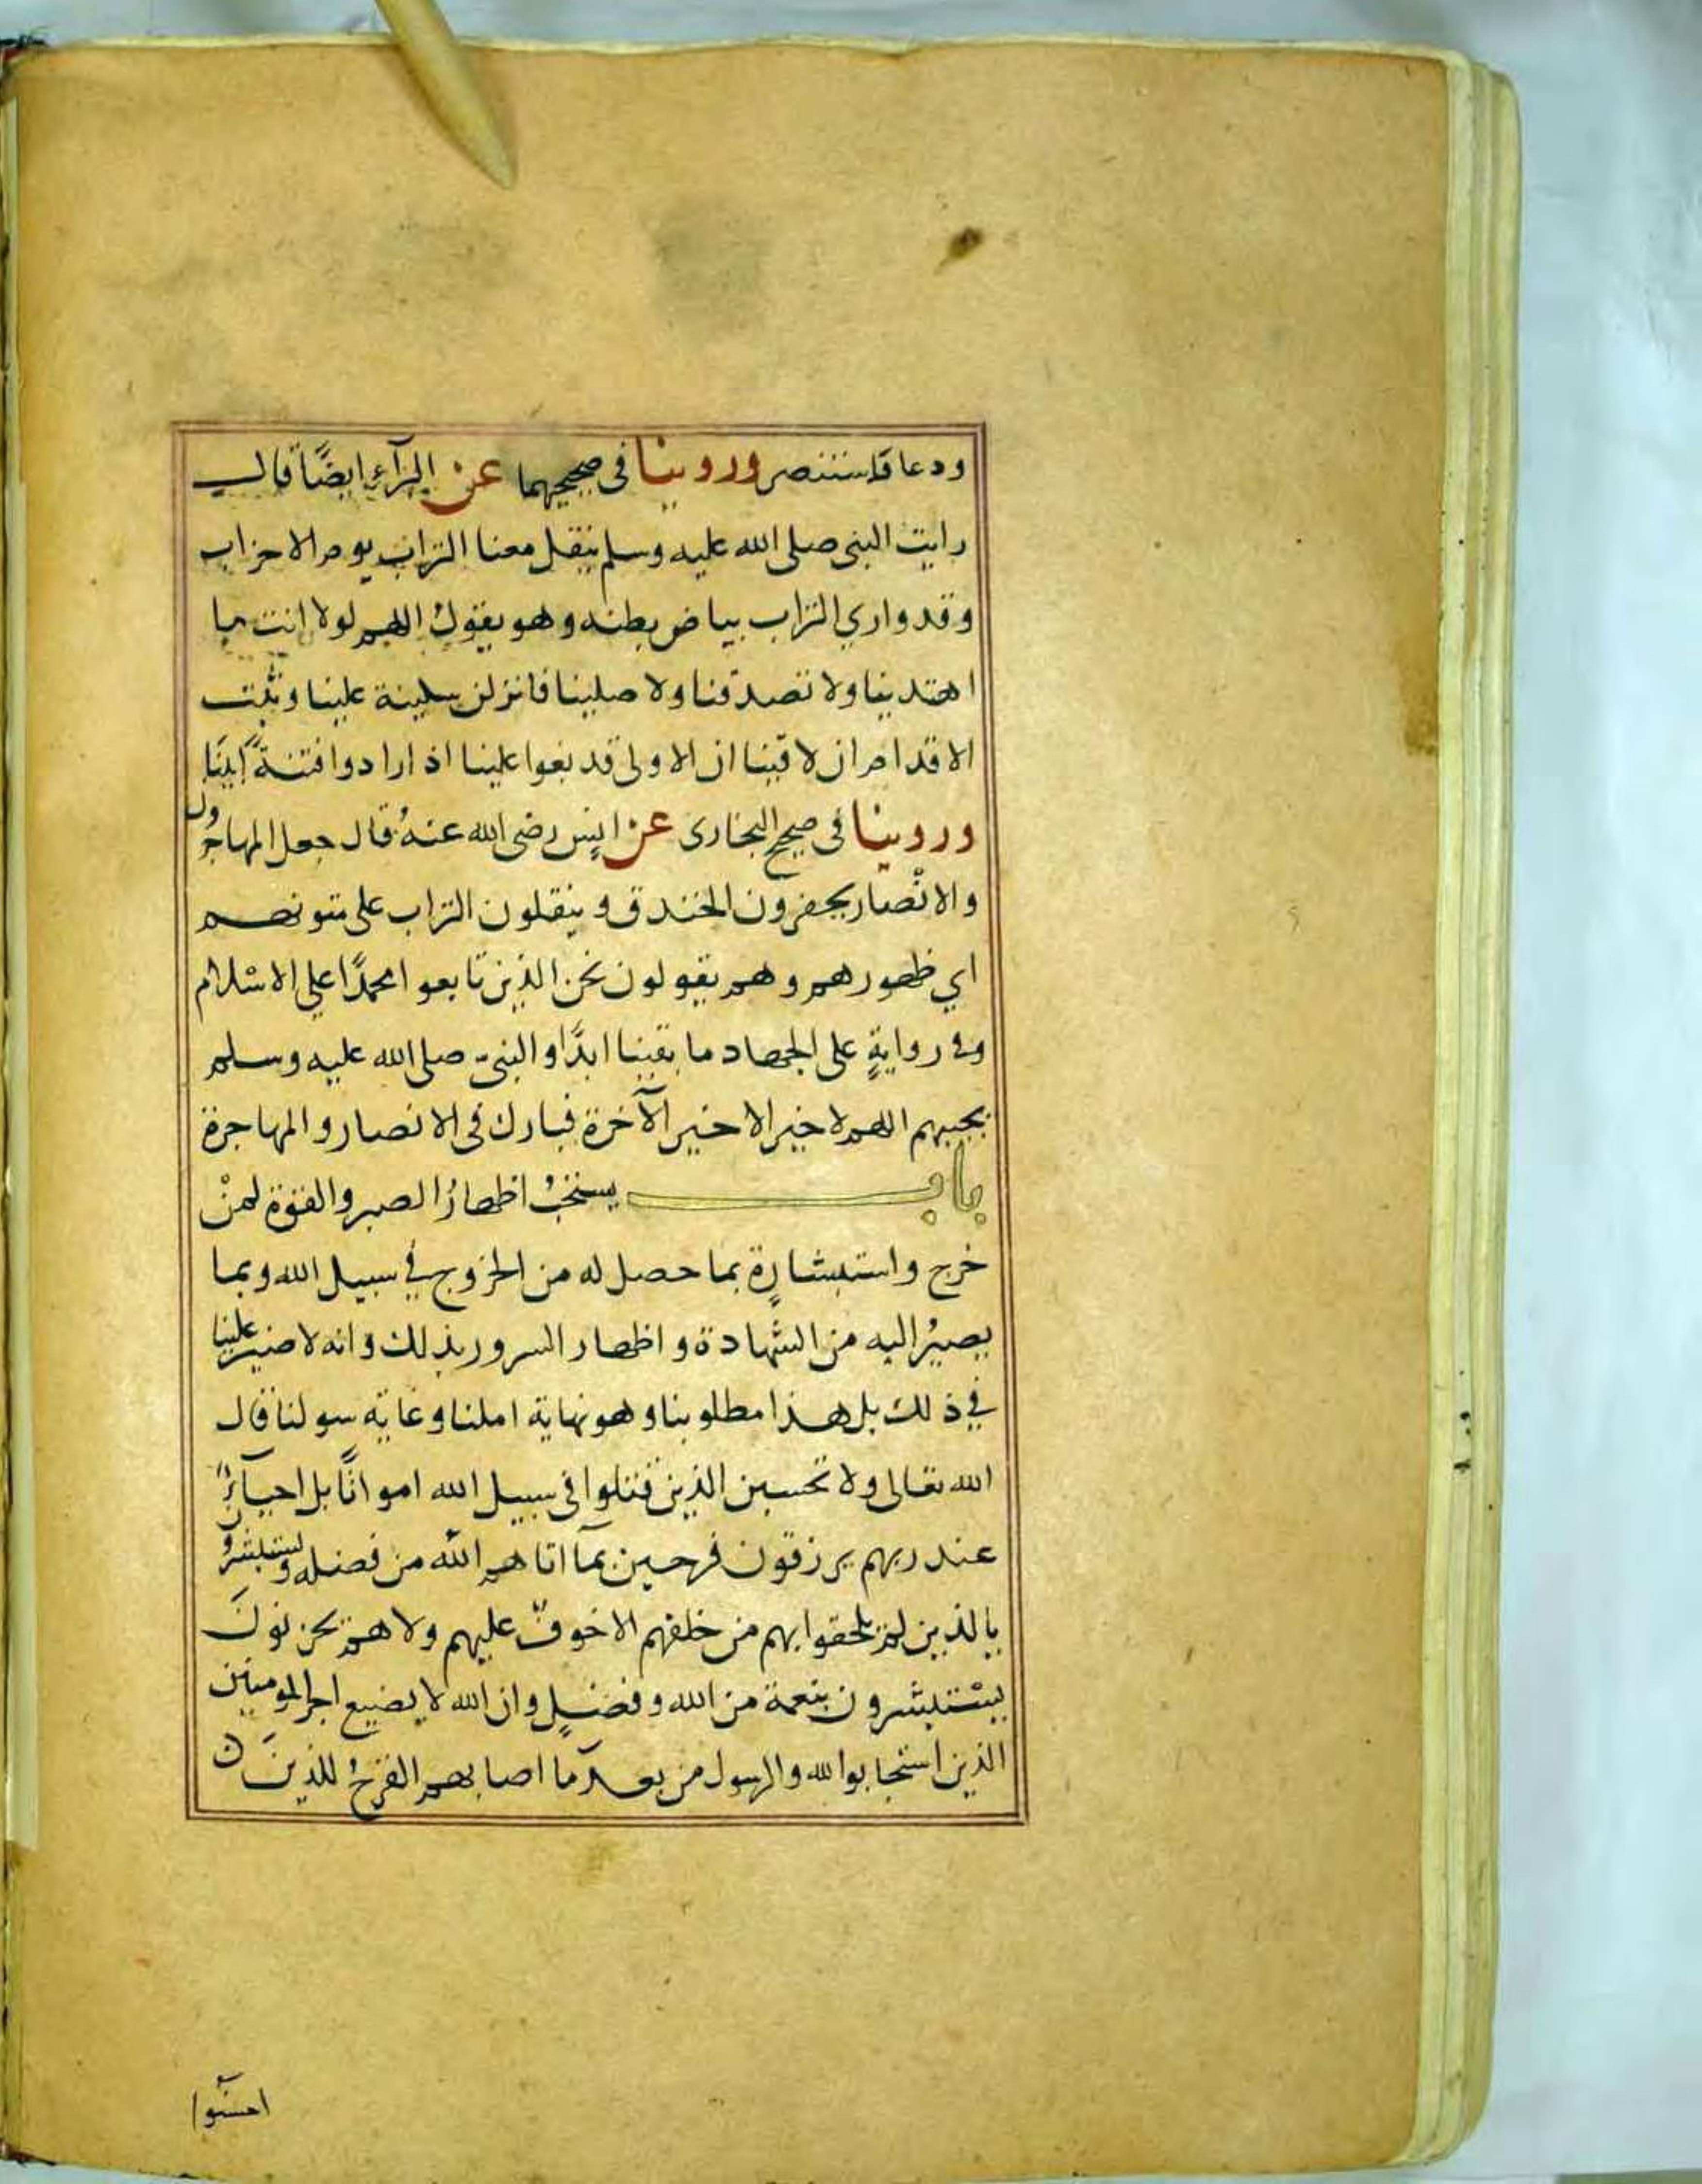 ودعا فاستنصر وروينا في صحيحيهما عن البرآء ايضًا قال
رايت النبي صلى الله عليه وسلم ينقل معنا التراب يوم الاحزاب
وقد واري التراب بياض بطنه وهو يقول اللهم لولا انت ما
اهتدينا ولا تصدقنا ولا صلينا فانزلن سكينة علينا وثبّت
الاقدام ان لاقينا ان الاولى قد بغوا علينا اذ ارادوا فتنةً ابينَا
وروينا في صحيح البخاري عن انس رضي الله عنهُ قال جعل المهاجرُون
والانْصار يحفرون الخندق وينقلون التراب على متونهم
اي ظهورهم وهم يقولون نحن الذين تابعوا محمدًا علي الاسْلام
وفي روايةٍ على الجهاد ما بقينا ابدًا والنبي صلى الله عليه وسلم
يجيبهم اللهم لا خير الا خير الآخرة فبارك في الانصار والمهاجرة
باب يستحبُ اظهارُ الصبر والقوة لمنْ
خرج واستبشارِهٍ بما حصل له من الخروج في سبيل الله وبما
يصيرُ اليه من الشَّهادة واظهار السرور بذلك وانه لا ضير علينا
في ذلك بل هذا مطلوبنا وهو نهاية املنا وغاية سولنا قال
الله تعالى ولا تحسبن الذين قتلوا في سبيل الله امواتًا بل احيآءٌ
عند ربهم يرزقون فرحين بمآ اتاهم اللّه من فضله ويستبشرون
بالذين لمْ يلحقوا بهم من خلفهم الا خوفٌ عليهم ولا همْ يحزنونَ
يسْتبشرون بنعمة من الله وفضلٍ وان الله لا يضيع اجر المومنين
الذين استجابوا لله والرسول من بعد مآ اصابهم القرحُ للذينَ
احسَنُوا